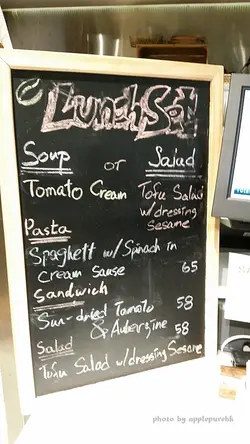 Lunch Set
Soup or Salad
Tomato Cream Tofu Salad
w/dressing
Sesame
Pasta
Spaghett w/ Spinach in
cream sause 65
Sandwich
Sun-dried Tomato 58
& Aubergine 58
Salad
Tofu Salad w/dressing Sesame
photo by applepurehk